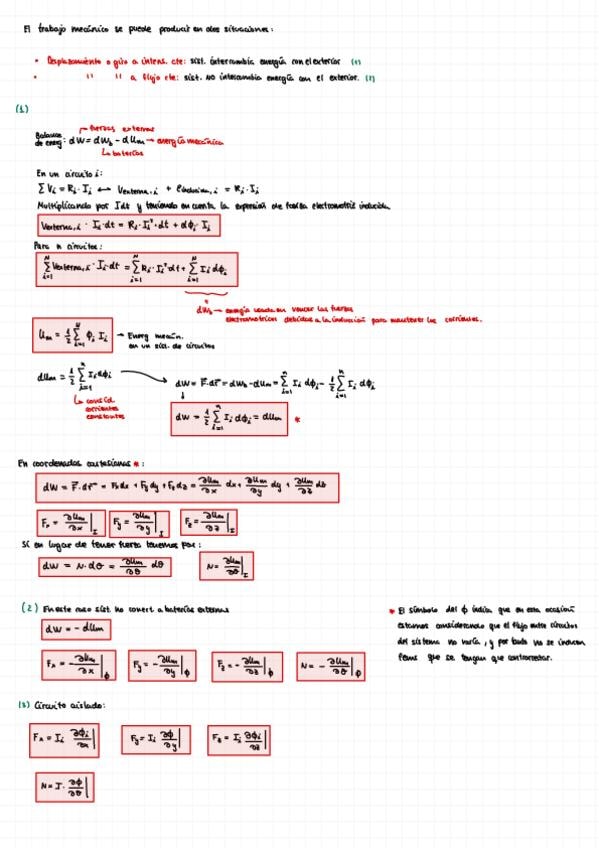 El trabajo mecánico se puede producir en dos situaciones:
• Desplazamiento o giro a intens. cte: sist. intercambia energía con el exterior (1)
• " " a flujo cte: sist. no intercambia energía con el exterior. (2)
(1)
→ fuerzas externas
Balance de energ: dW = dW_b - dU_m → energía mecánica
↳ baterías
En un circuito i:
∑ V_i = R_i · I_i ↔ V_externa,i + ε_inducida,i = R_i · I_i
Multiplicando por I dt y teniendo en cuenta la expresión de fuerza electromotriz inducida
V_externa,i · I_i · dt = R_i · I_i² · dt + dϕ_i · I_i
Para n circuitos:
∑_{i=1}^{N} V_externa,i · I_i · dt = ∑_{i=1}^{N} R_i · I_i² dt + ∑_{i=1}^{N} I_i dϕ_i
dW_b → energía usada en vencer las fuerzas
electromotrices debidas a la inducción para mantener las corrientes.
U_m = 1/2 ∑_{i=1}^{N} ϕ_i I_i → Energ mecán.
en un sist. de circuitos
dU_m = 1/2 ∑_{i=1}^{n} I_i dϕ_i
dW = F⃗ · dr⃗ = dW_b - dU_m = ∑_{i=1}^{n} I_i dϕ_i - 1/2 ∑_{i=1}^{n} I_i dϕ_i
↳ consid.
corrientes
constantes
dW = 1/2 ∑_{i=1}^{n} I_i dϕ_i = dU_m *
En coordenadas cartesianas *:
dW = F⃗ · dr⃗ = F_x dx + F_y dy + F_z dz = ∂U_m/∂x dx + ∂U_m/∂y dy + ∂U_m/∂z dz
F_x = ∂U_m/∂x |_I F_y = ∂U_m/∂y |_I F_z = ∂U_m/∂z |_I
Si en lugar de tener fuerza tenemos par:
dW = N · dθ = ∂U_m/∂θ dθ N = ∂U_m/∂θ |_I
(2) En este caso sist. no conect. a baterías externas
dW = - dU_m
F_x = - ∂U_m/∂x |_ϕ F_y = - ∂U_m/∂y |_ϕ F_z = - ∂U_m/∂z |_ϕ N = - ∂U_m/∂θ |_ϕ
* El símbolo del ϕ indica que en esta ocasión
estamos considerando que el flujo entre circuitos
del sistema no varía, y por tanto no se inducen
fems que se tengan que contrarrestar.
(3) Circuito aislado:
F_x = I_i ∂ϕ_i/∂x | F_y = I_i ∂ϕ/∂y | F_z = I_i ∂ϕ_i/∂z |
N = I · ∂ϕ/∂θ |